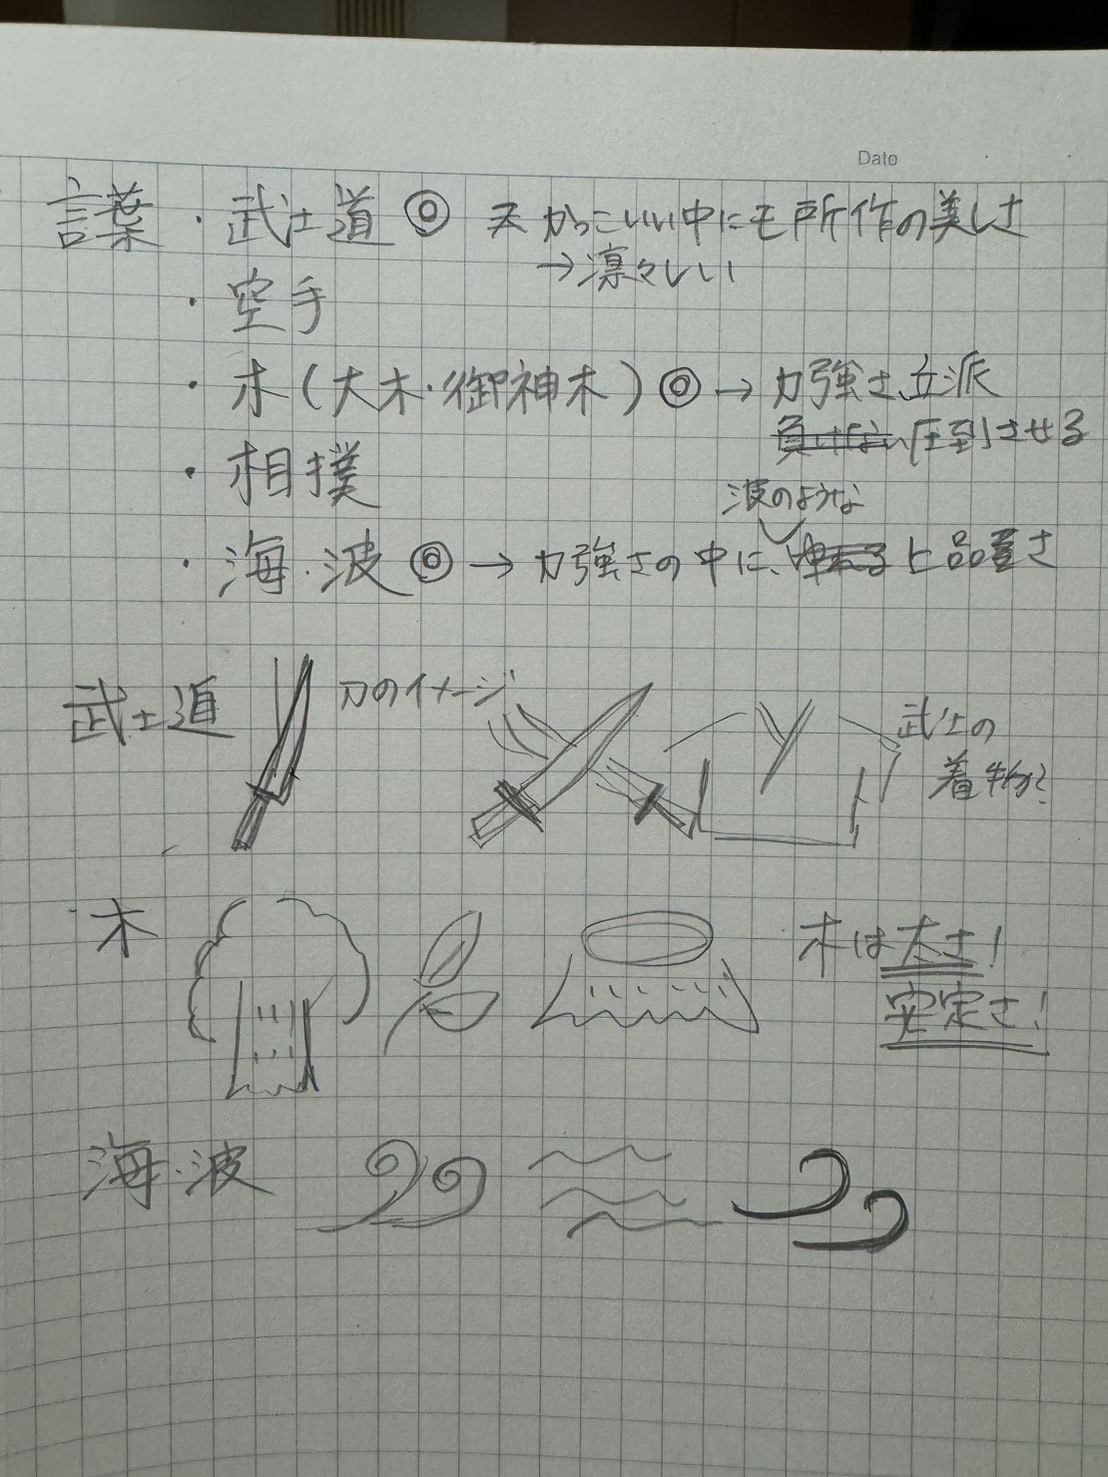 Date
言葉 ・武士道 ◎ かっこいい中にも所作の美しさ
→凛々しい
・空手
・木(大木・御神木) ◎ → 力強さ、立派
負けない圧到させる
・相撲
波のような
・海・波 ◎ → 力強さの中に、上品さ
武士道 刀のイメージ
武士の
着物?
木 木は太さ!
安定さ!
海・波